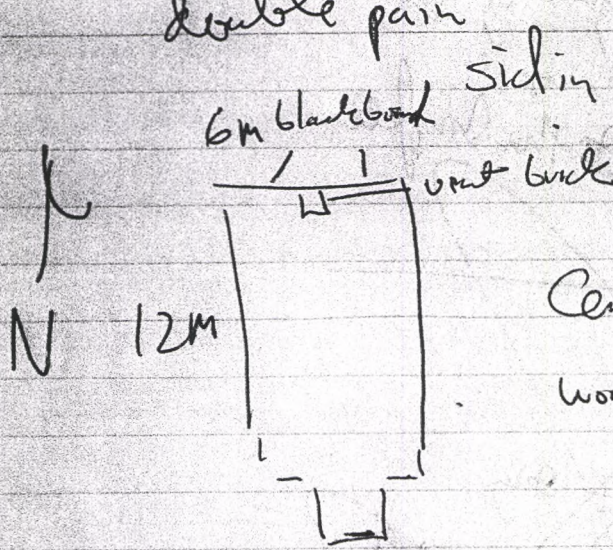 double pain
sid in
6m blackboard
vent brick
N 12M
Cen
wo